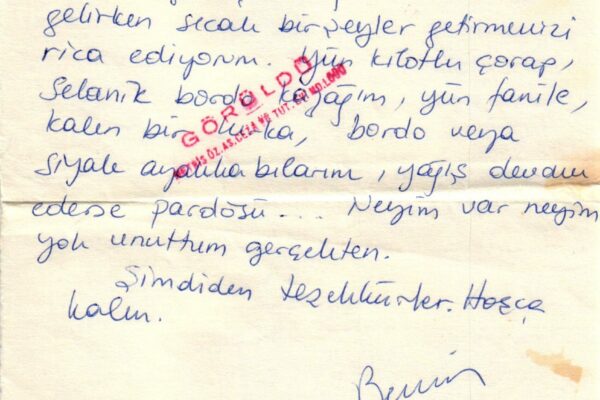 gelirken sıcak birşeyler getirmenizi
rica ediyorum. Yün kilotlu çorap,
Selanik bordo kazağım, yün fanile,
kalın bir hırka, bordo veya
siyah ayakkabılarım, yağış devam
ederse pardösü... Neyim var neyim
yok unuttum gerçekten.
Şimdiden teşekkürler. Hoşça
kalın.
GÖRÜLDÜ
ÖZ. AS. CEZA VE TUT.